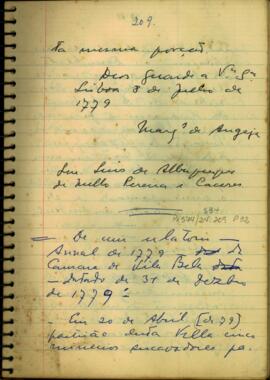 209.
na mesma porção.
Deos guarde a V.ª S.ª
Lisboa 8 de Julho de
1779
Marq.ˢ de Angeja
Snr. Luis de Albuquerque
de Mello Pereira e Caceres
= De um relatorio
Annal de 1779 da
Camara de Vila Bela
datado de 31 de Dezbro
de 1779 =
- Em 20 de Abril [de 79]
partirão desta Villa cinco
mineiros